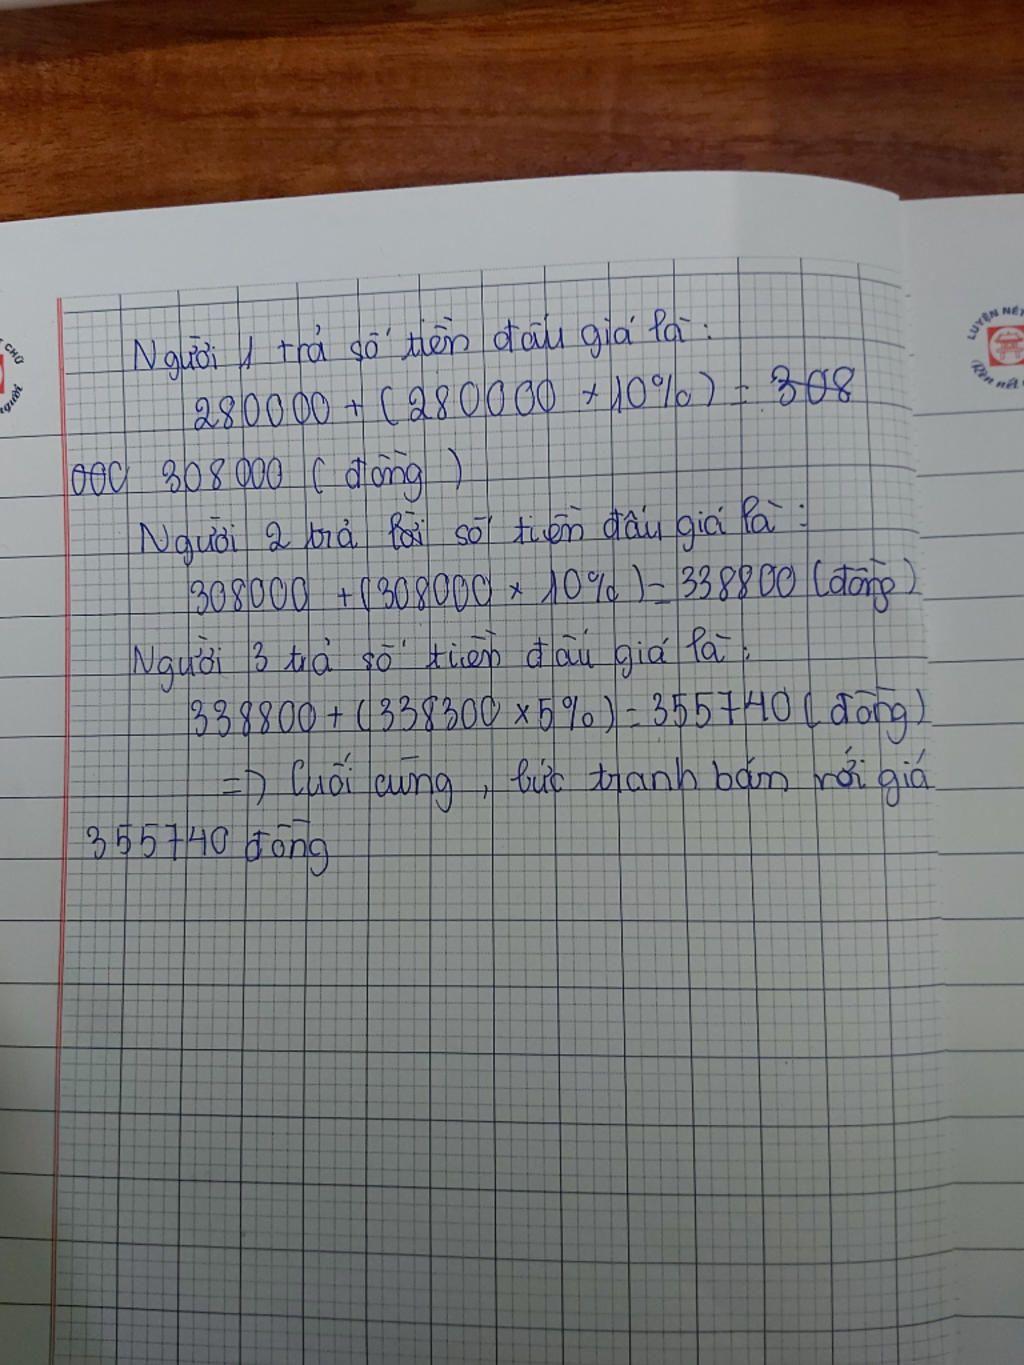 Người 1 trả số tiền đấu giá là:
280000 + (280000 × 10%) = 308
000 308000 (đồng)
Người 2 trả lời số tiền đấu giá là:
308000 + (308000 × 10%) = 338800 (đồng)
Người 3 trả số tiền đấu giá là:
338800 + (338300 × 5%) = 355740 (đồng)
=> Cuối cùng, bức tranh bán với giá
355740 đồng
LUYỆN NÉT
Rèn nết
CHỮ
người